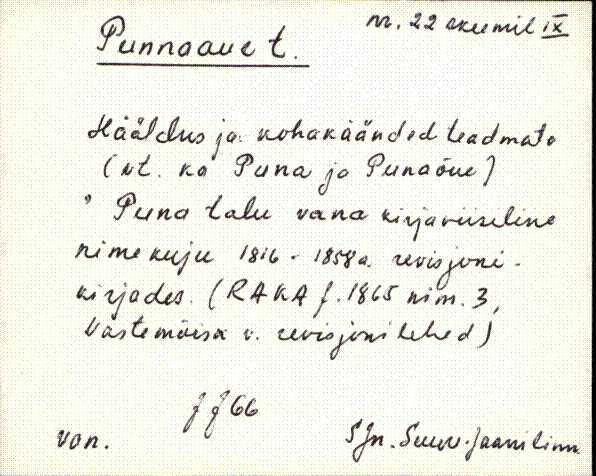 nr. 22 skeemil IX
Punnaaue t.
Hääldus ja kohakäänded teadmata
(vt. ka Puna ja Punaõue)
Puna talu vana kirjaviisiline
nimekuju 1816 - 1858 a. revisjoni-
kirjades. (RAKA f. 1865 nim. 3,
Vastemõisa v. revisjonilehed)
van.
SJn. Suure-Jaani linn